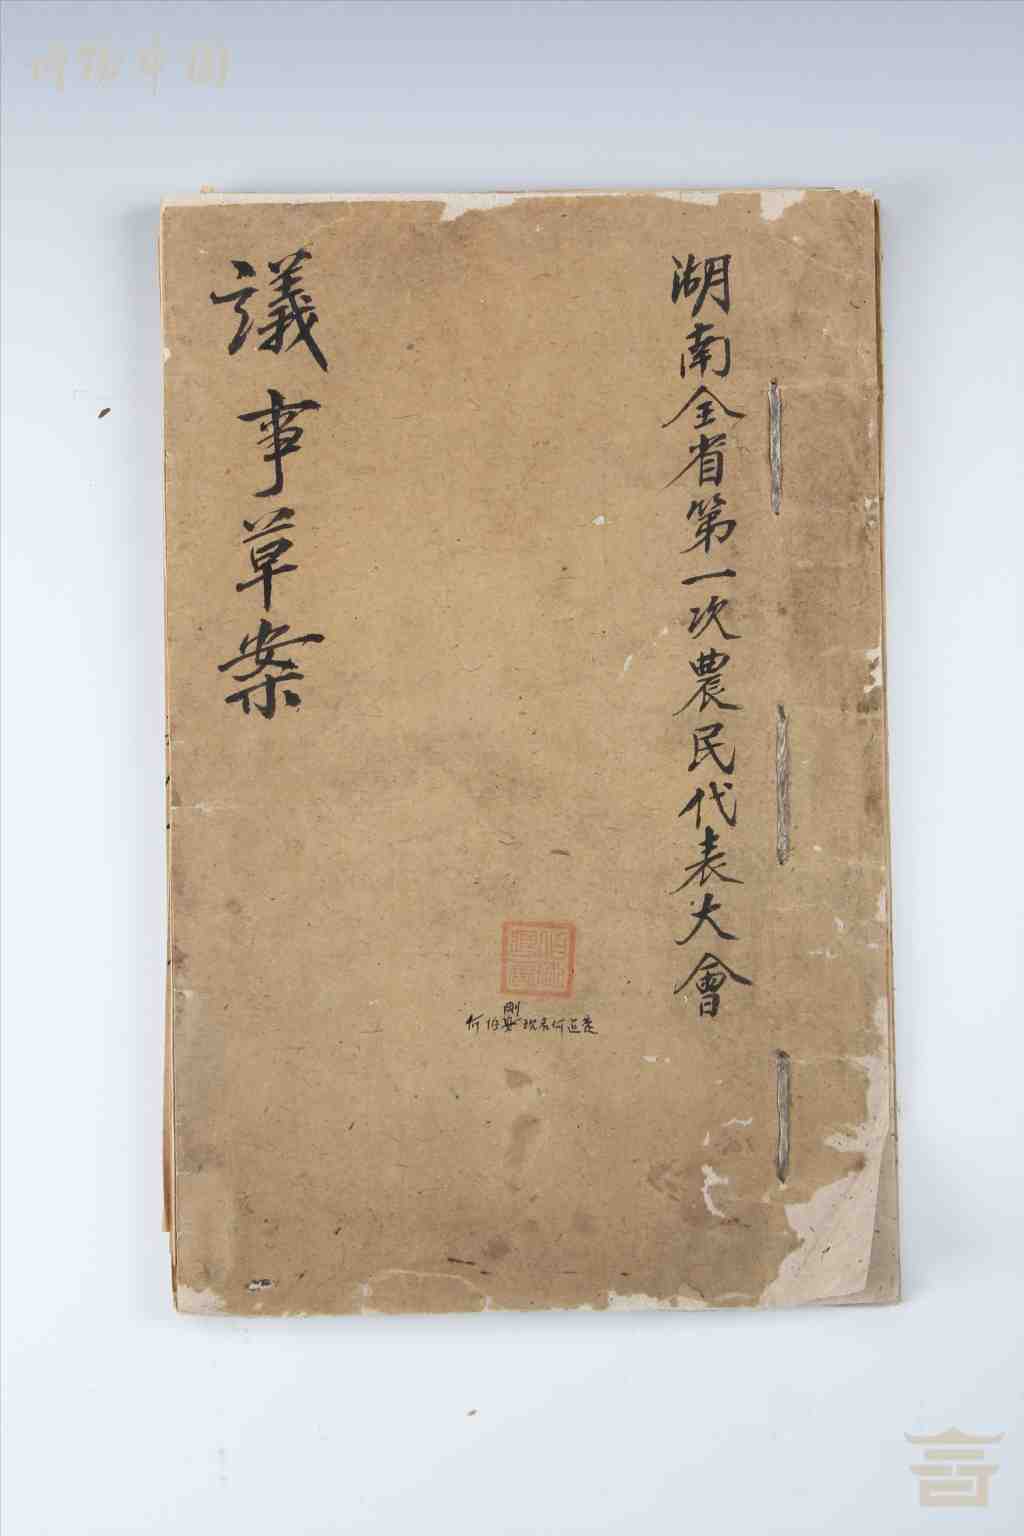 博物中国
湖南全省第一次農民代表大會
議事草案